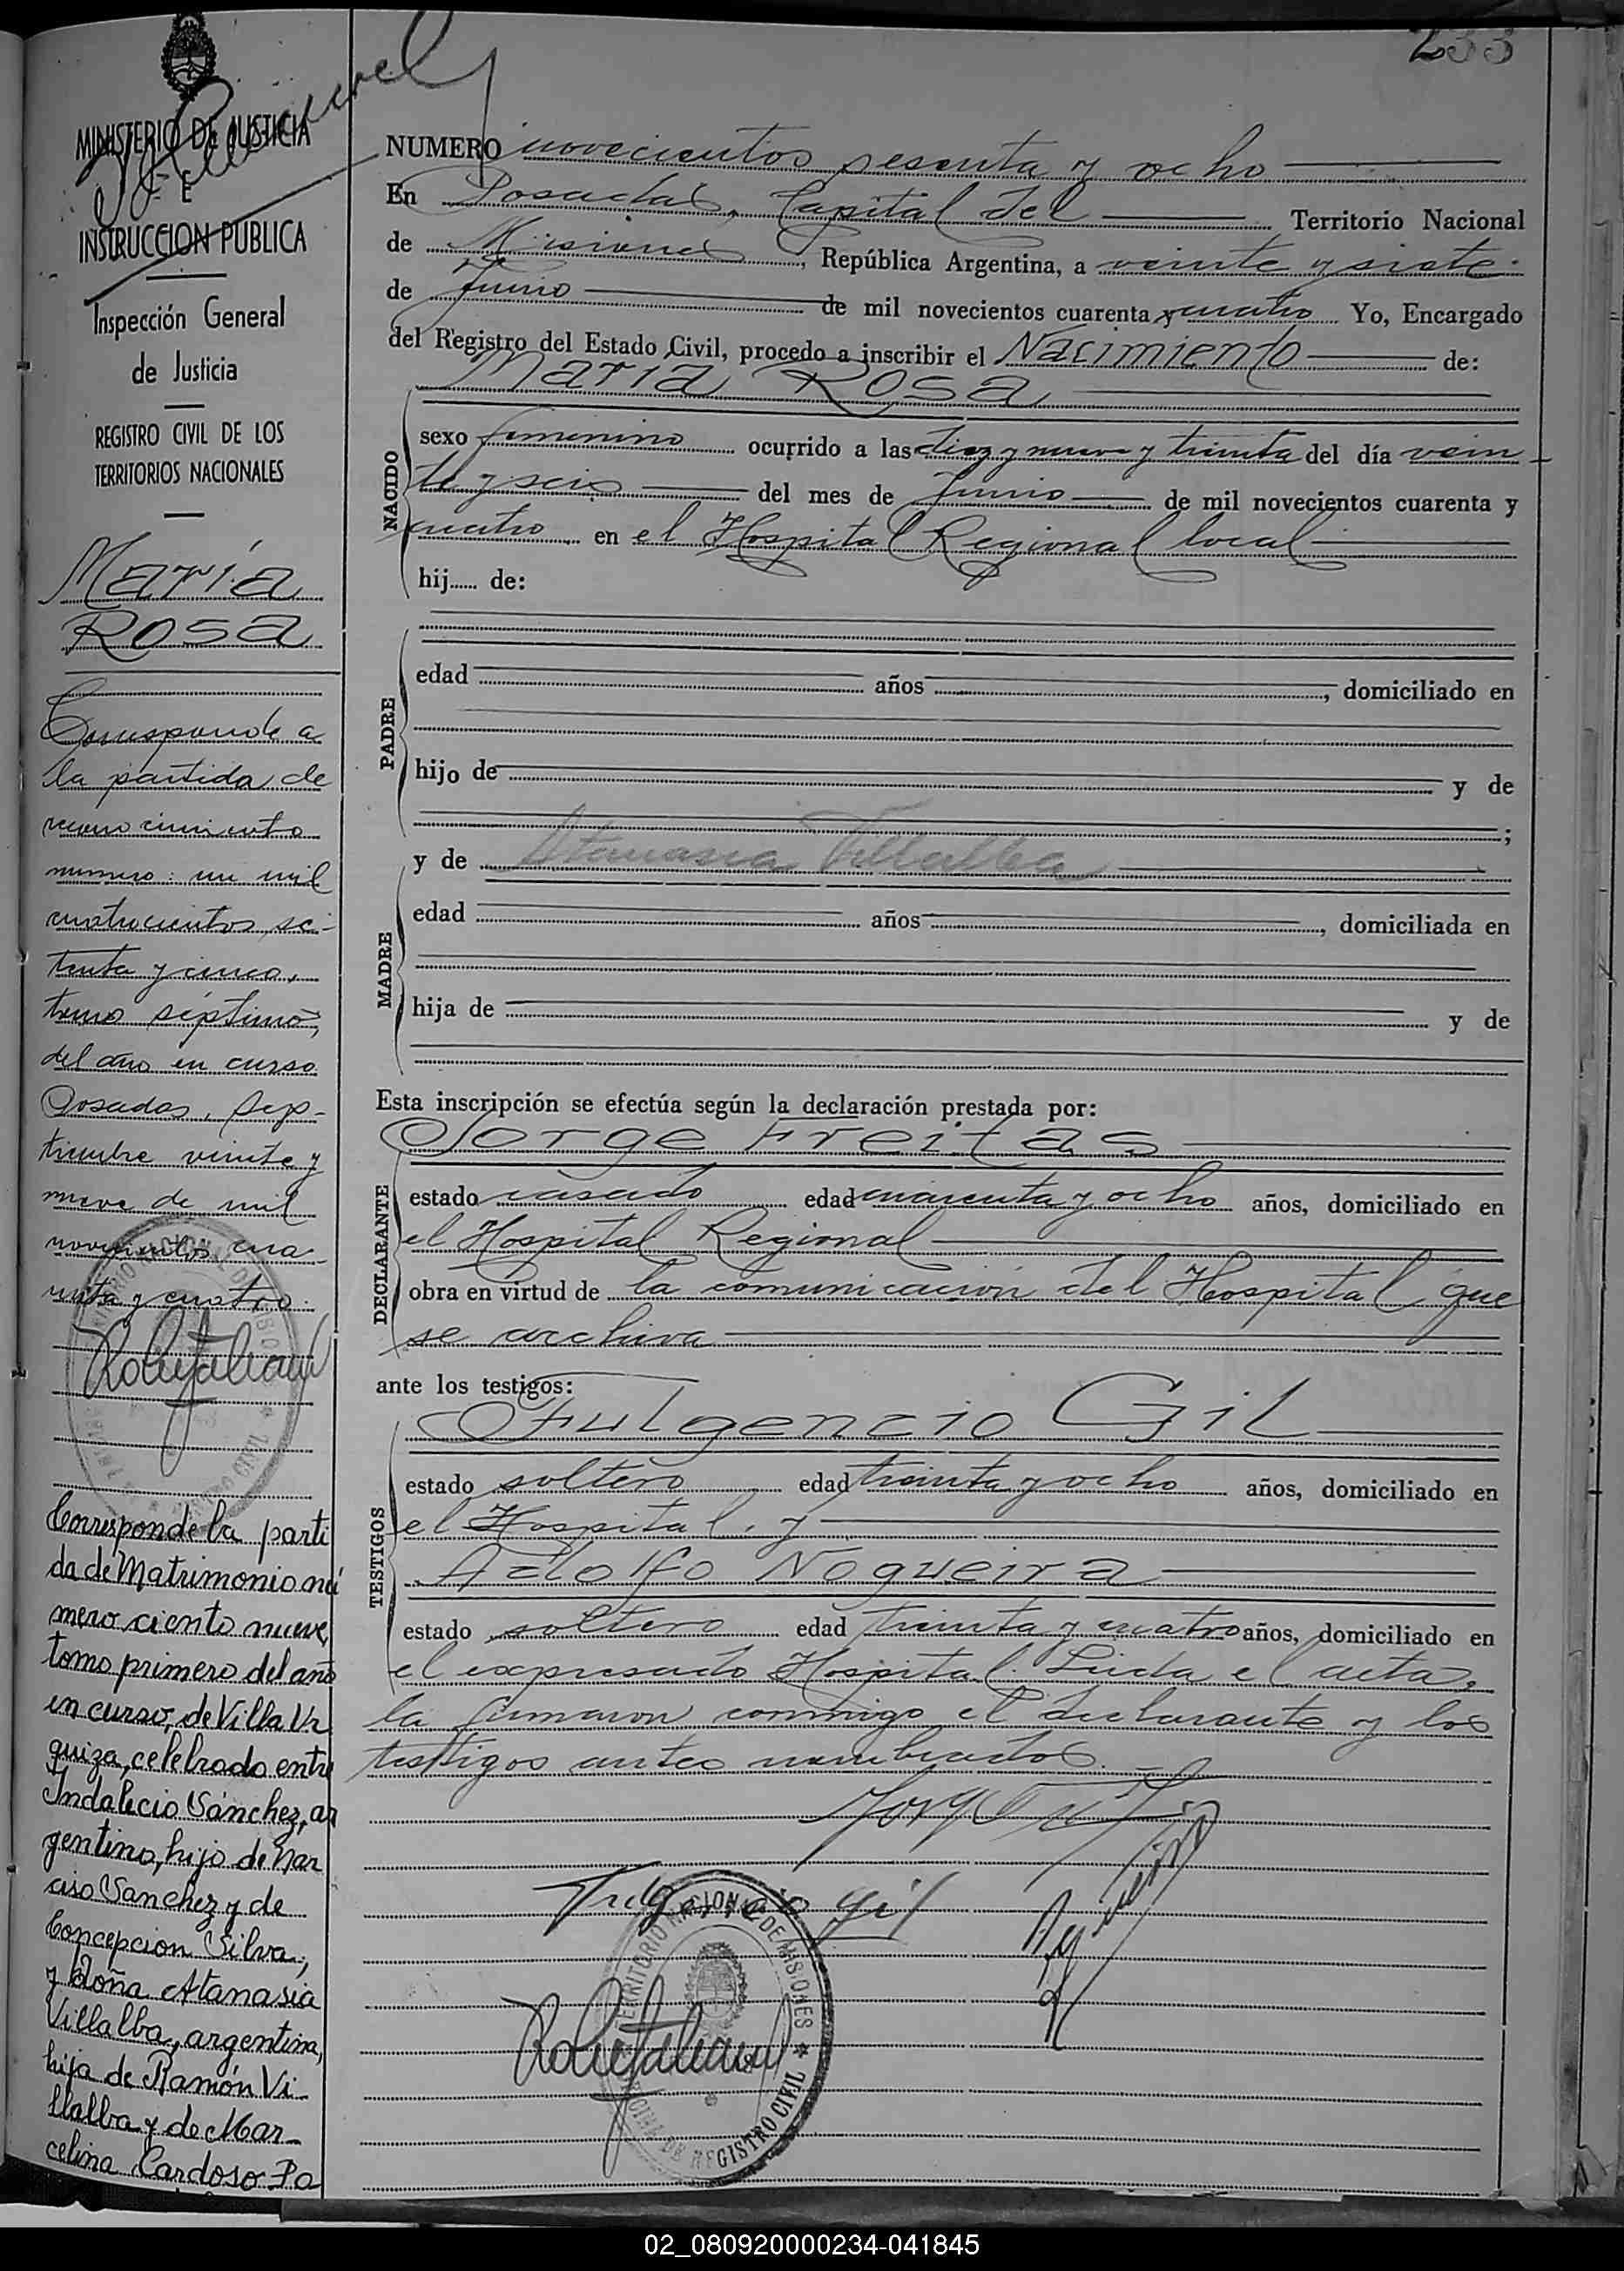 233
MINISTERIO DE JUSTICIA
E
INSTRUCCION PUBLICA
Inspección General
de Justicia
REGISTRO CIVIL DE LOS
TERRITORIOS NACIONALES
María
Rosa
Corresponde a
la partida de
reconocimiento
número: un mil
cuatrocientos se-
tenta y cinco,
tomo séptimo,
del año en curso
Posadas, Sep-
tiembre veinte y
nueve de mil
novecientos cua-
renta y cuatro.
Corresponde la parti
da de Matrimonio nú
mero ciento nueve,
tomo primero del año
en curso, de Villa Ur
quiza, celebrado entre
Indalecio Sánchez, ar
gentino, hijo de Nar
ciso Sanchez y de
Concepcion Silva,
y doña Atanasia
Villalba, argentina,
hija de Ramón Vi-
llalba y de Mar-
celina Cardoso. Po
NUMERO novecientos sesenta y ocho
En Posadas, Capital del Territorio Nacional
de Misiones, República Argentina, a veinte y siete
de Junio de mil novecientos cuarenta y cuatro Yo, Encargado
del Registro del Estado Civil, procedo a inscribir el Nacimiento de:
María Rosa
NACIDO
sexo femenino ocurrido a las diez y nueve y treinta del día vein-
te y seis del mes de Junio de mil novecientos cuarenta y
cuatro en el Hospital Regional local
hij...... de:
PADRE
edad años, domiciliado en
hijo de y de
;
y de Atanasia Villalba
MADRE
edad años, domiciliada en
hija de y de
Esta inscripción se efectúa según la declaración prestada por:
Jorge Freitas
DECLARANTE
estado casado edad cuarenta y ocho años, domiciliado en
el Hospital Regional
obra en virtud de la comunicación del Hospital que
se archiva
ante los testigos:
Fulgencio Gil
TESTIGOS
estado soltero edad treinta y ocho años, domiciliado en
el Hospital. y
Adolfo Nogueira
estado soltero edad treinta y cuatro años, domiciliado en
el expresado Hospital. Leída el acta,
la firmaron conmigo el declarante y los
testigos antes nombrados.
Fulgencio Gil
TERRITORIO NACIONAL DE MISIONES
OFICINA DE REGISTRO CIVIL
02_080920000234-041845